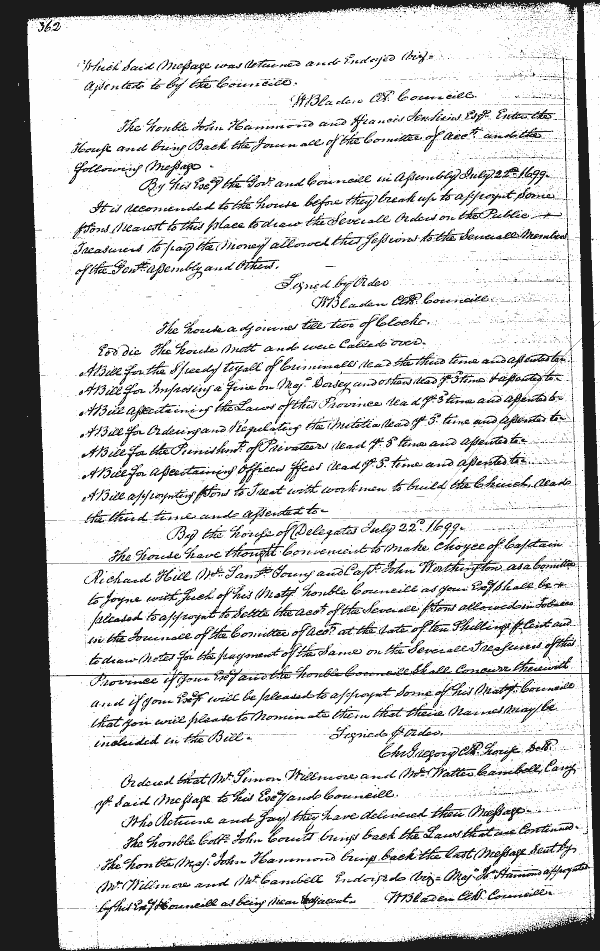 362
Which Said Message was returned and Endorsed viz.
Assented to by the Councill.
WBladen Cl. Councill
The honble John Hammond and ffrancis Jenkins Esqr. Enter the
House and bring Back the Journall of the Comittee of Acct. and the
following Message.
By his Excy the Govr. and Councill in Assembly July 22th 1699.
It is recomended to the house before they break up to appoynt Some
psons nearest to this place to draw the Severall Orders on the Public
Treasurers to pay the Money allowed this Sessions to the Severall Members
of the Genll. Assembly and Others.
Signed by Order
WBladen Cl. Councill
The house adjournes till two of Clock.
Eod die The house mett and were Called over.
A Bill for the Speedy tryall of Criminalls read the third time and assented to
A Bill for Imposing a fine on Maj. Dorsey and others read ye 3 time & assented to
A Bill ascertaining the Laws of this Province read ye 3 time and assented to
A Bill for Ordering and Regulating the Militia read ye 3. time and assented to
A Bill for the Punishmt. of Privateers read ye 3 time and assented to
A Bill for ascertaining Officers ffees read ye 3. time and assented to
A Bill appoynting psons to Treat with workmen to build the Church read
the third time and assented to
By the house of Delegates July 22d. 1699.
The house have thought Convenient to make Choyce of Captain
Richard Hill Mr. Saml. Young and Capt. John Worthington as a Comittee
to Joyne with Such of his Matys honble Councill as your Excy Shall be
pleased to appoynt to Settle the Acct of the Severall psons allowed in Tobacco
in the Journall of the Comittee of Acct at the rate of ten Shillings p Cent and
to draw Notes for the payment of the Same on the Severall Treasurers of this
Province if your Excy and the honble Councill Shall Concurr therewith
and if your Excy will be pleased to appoynt Some of his Matys. Councill
that you will please to Nominate them that their Names may be
included in the Bill. Signed p order.
Chr Gregory Cl. house Del.
Ordered that Mr. Simon Willmore and Mr. Walter Cambell, Carry
ye Said Message to his Excy and Councill.
Who Returne and Say they have delivered their Message.
The honble Coll. John Courts brings back the Laws that are Continued.
The honble Maj. John Hammond brings back the last Message Sent by
Mr Willmore and Mr Cambell Endorsed viz. Maj. Jno. Hamond appoynted
by his Excy & Councill as being near adjacent. WBladen Cl. Councill